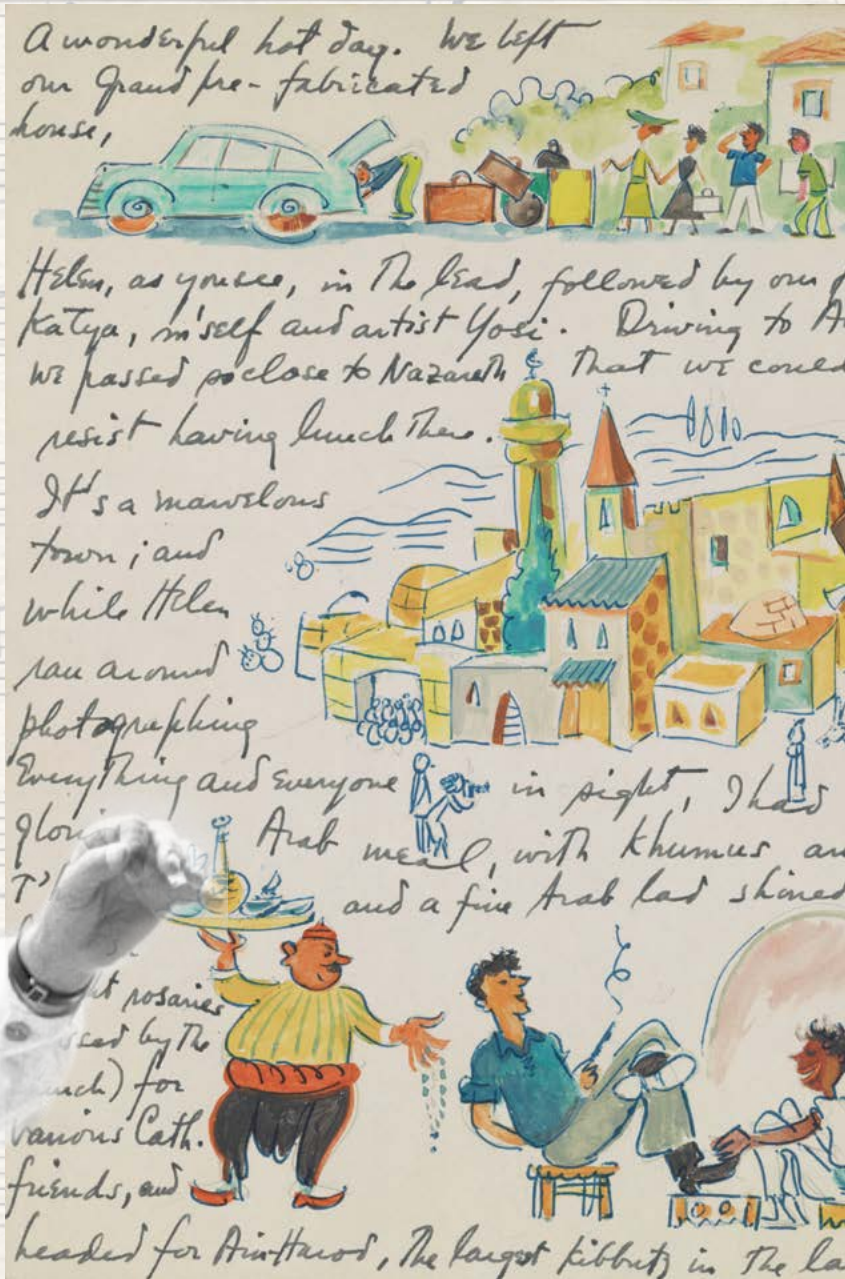 A wonderful hot day. We left
our Grand pre-fabricated
house,
Helen, as you see, in the lead, followed by our
Katya, m'self and artist Yosi. Driving to
we passed so close to Nazareth that we could
resist having lunch there.
It's a marvelous
town; and
while Helen
ran around
photographing
Everything and Everyone in sight, I had
Arab meal, with Khumus
and a fine Arab lad shined
rosaries
by the
for
various Cath.
friends, and
headed for Ain-Harod, the largest kibbutz in the